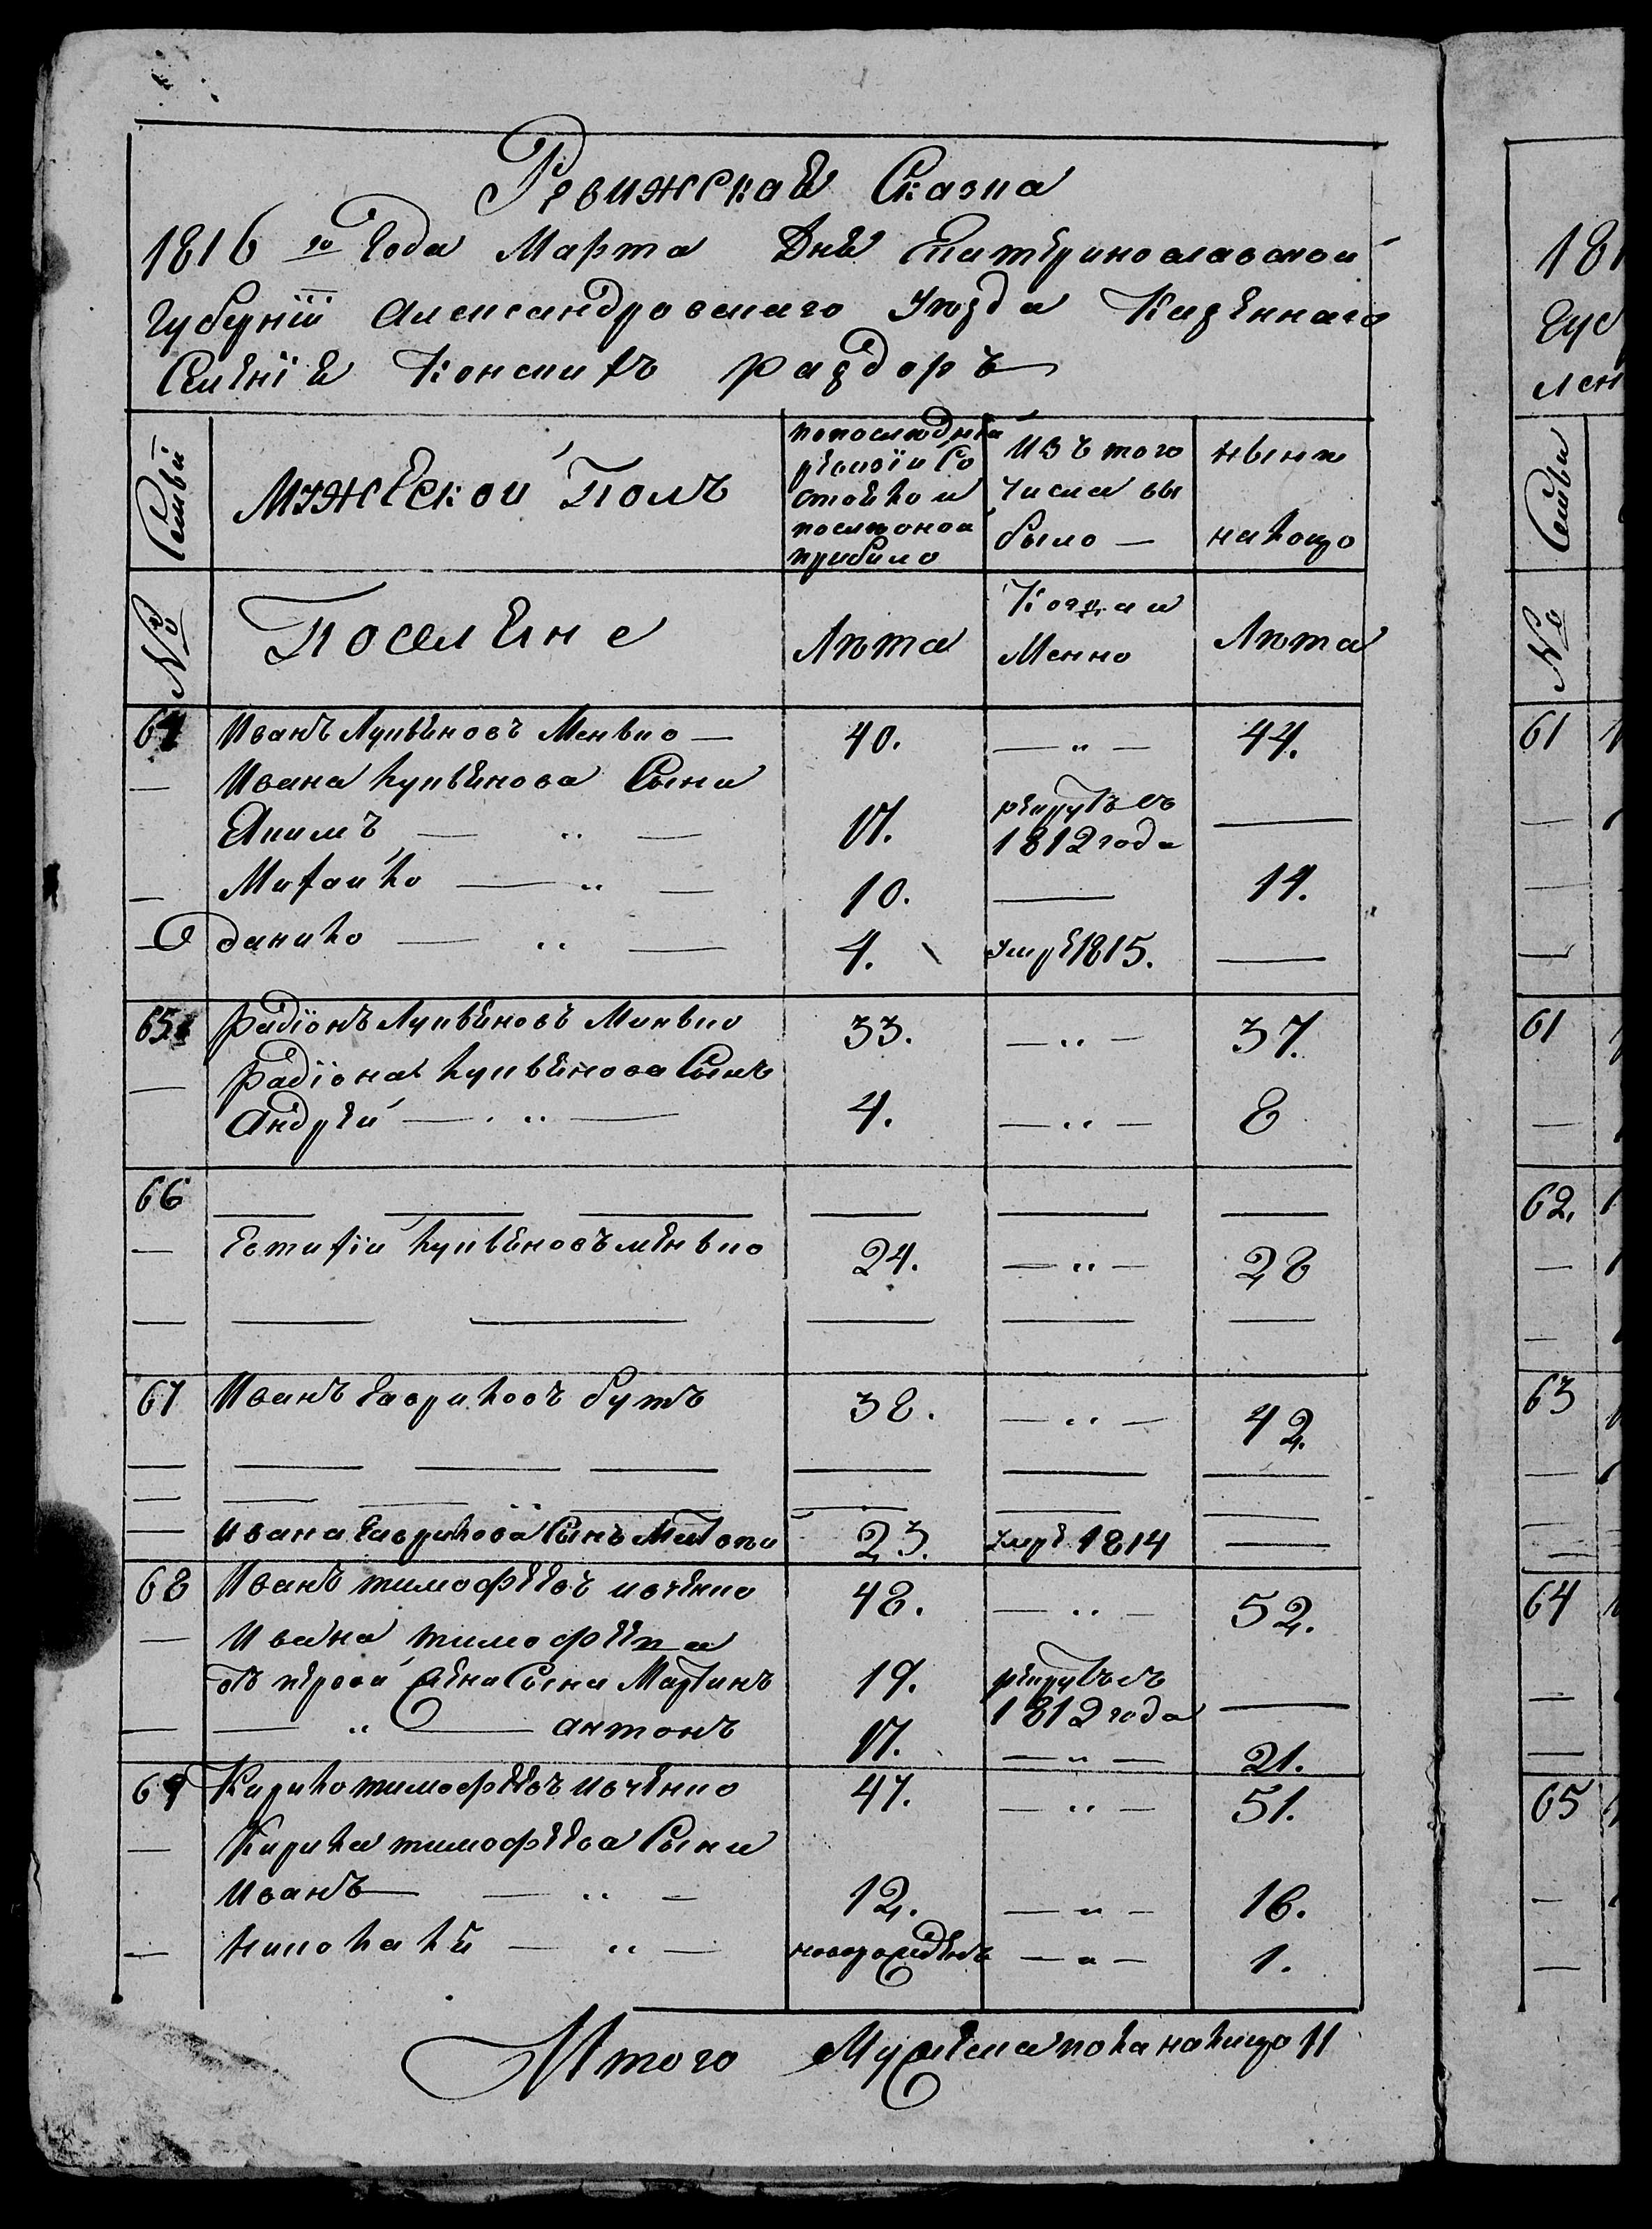 Ревижская Сказка
1816го Года Марта Дня Екатеринославской
Губернїи Александровскаго Уезда Казеннаго
Селенїя Конскихъ раздоръ
Семьи
Мужеской Полъ
по последней
ревизїи Со
стояло и
после оной
прибило
Изъ того
числа вы
было —
ныне
налицо
№
Поселяне
Лета
Когда и
Менно
Лета
64 Иванъ Лукьяновъ Менько — 40. — „ — 44.
— Ивана Лукьянова Сына
Якимъ — „ — 17. рекрутъ въ 1812 года —
— Михайло — „ — 10. — 14.
— данило — „ — 4. умре 1815. —
65 Радїонъ Лукьяновъ Минько 33. — „ — 37.
— Радїона Лукьянова Сынъ
Андрей — „ — 4. — „ — 8
66 — — — — — —
— Естафiи Лукьяновъ менько 24. — „ — 28
— — — — — —
67 Иванъ Гавриловъ бутъ 38. — „ — 42.
— — — — — — —
— — — „ — — — —
— Ивана Гаврилова Сынъ 23. умре 1814 —
68 Иванъ тимофеевъ ивченко 48. — „ — 52.
— Ивана тимофеева
отъ первой жены Сына Мартинъ 19. рекрутъ въ 1812 года —
— — „ — антонъ 17. — „ — 21.
69 Кирило тимофеевъ ивченко 47. — „ — 51.
— Кирила тимофеева Сына
Иванъ — — „ — 12. — „ — 16.
— Николай — „ — новорожденъ — „ — 1.
Итого Мужеска пола налицо 11
181
Гус
лен
Семьи
№
61
61
62.
63
64
65